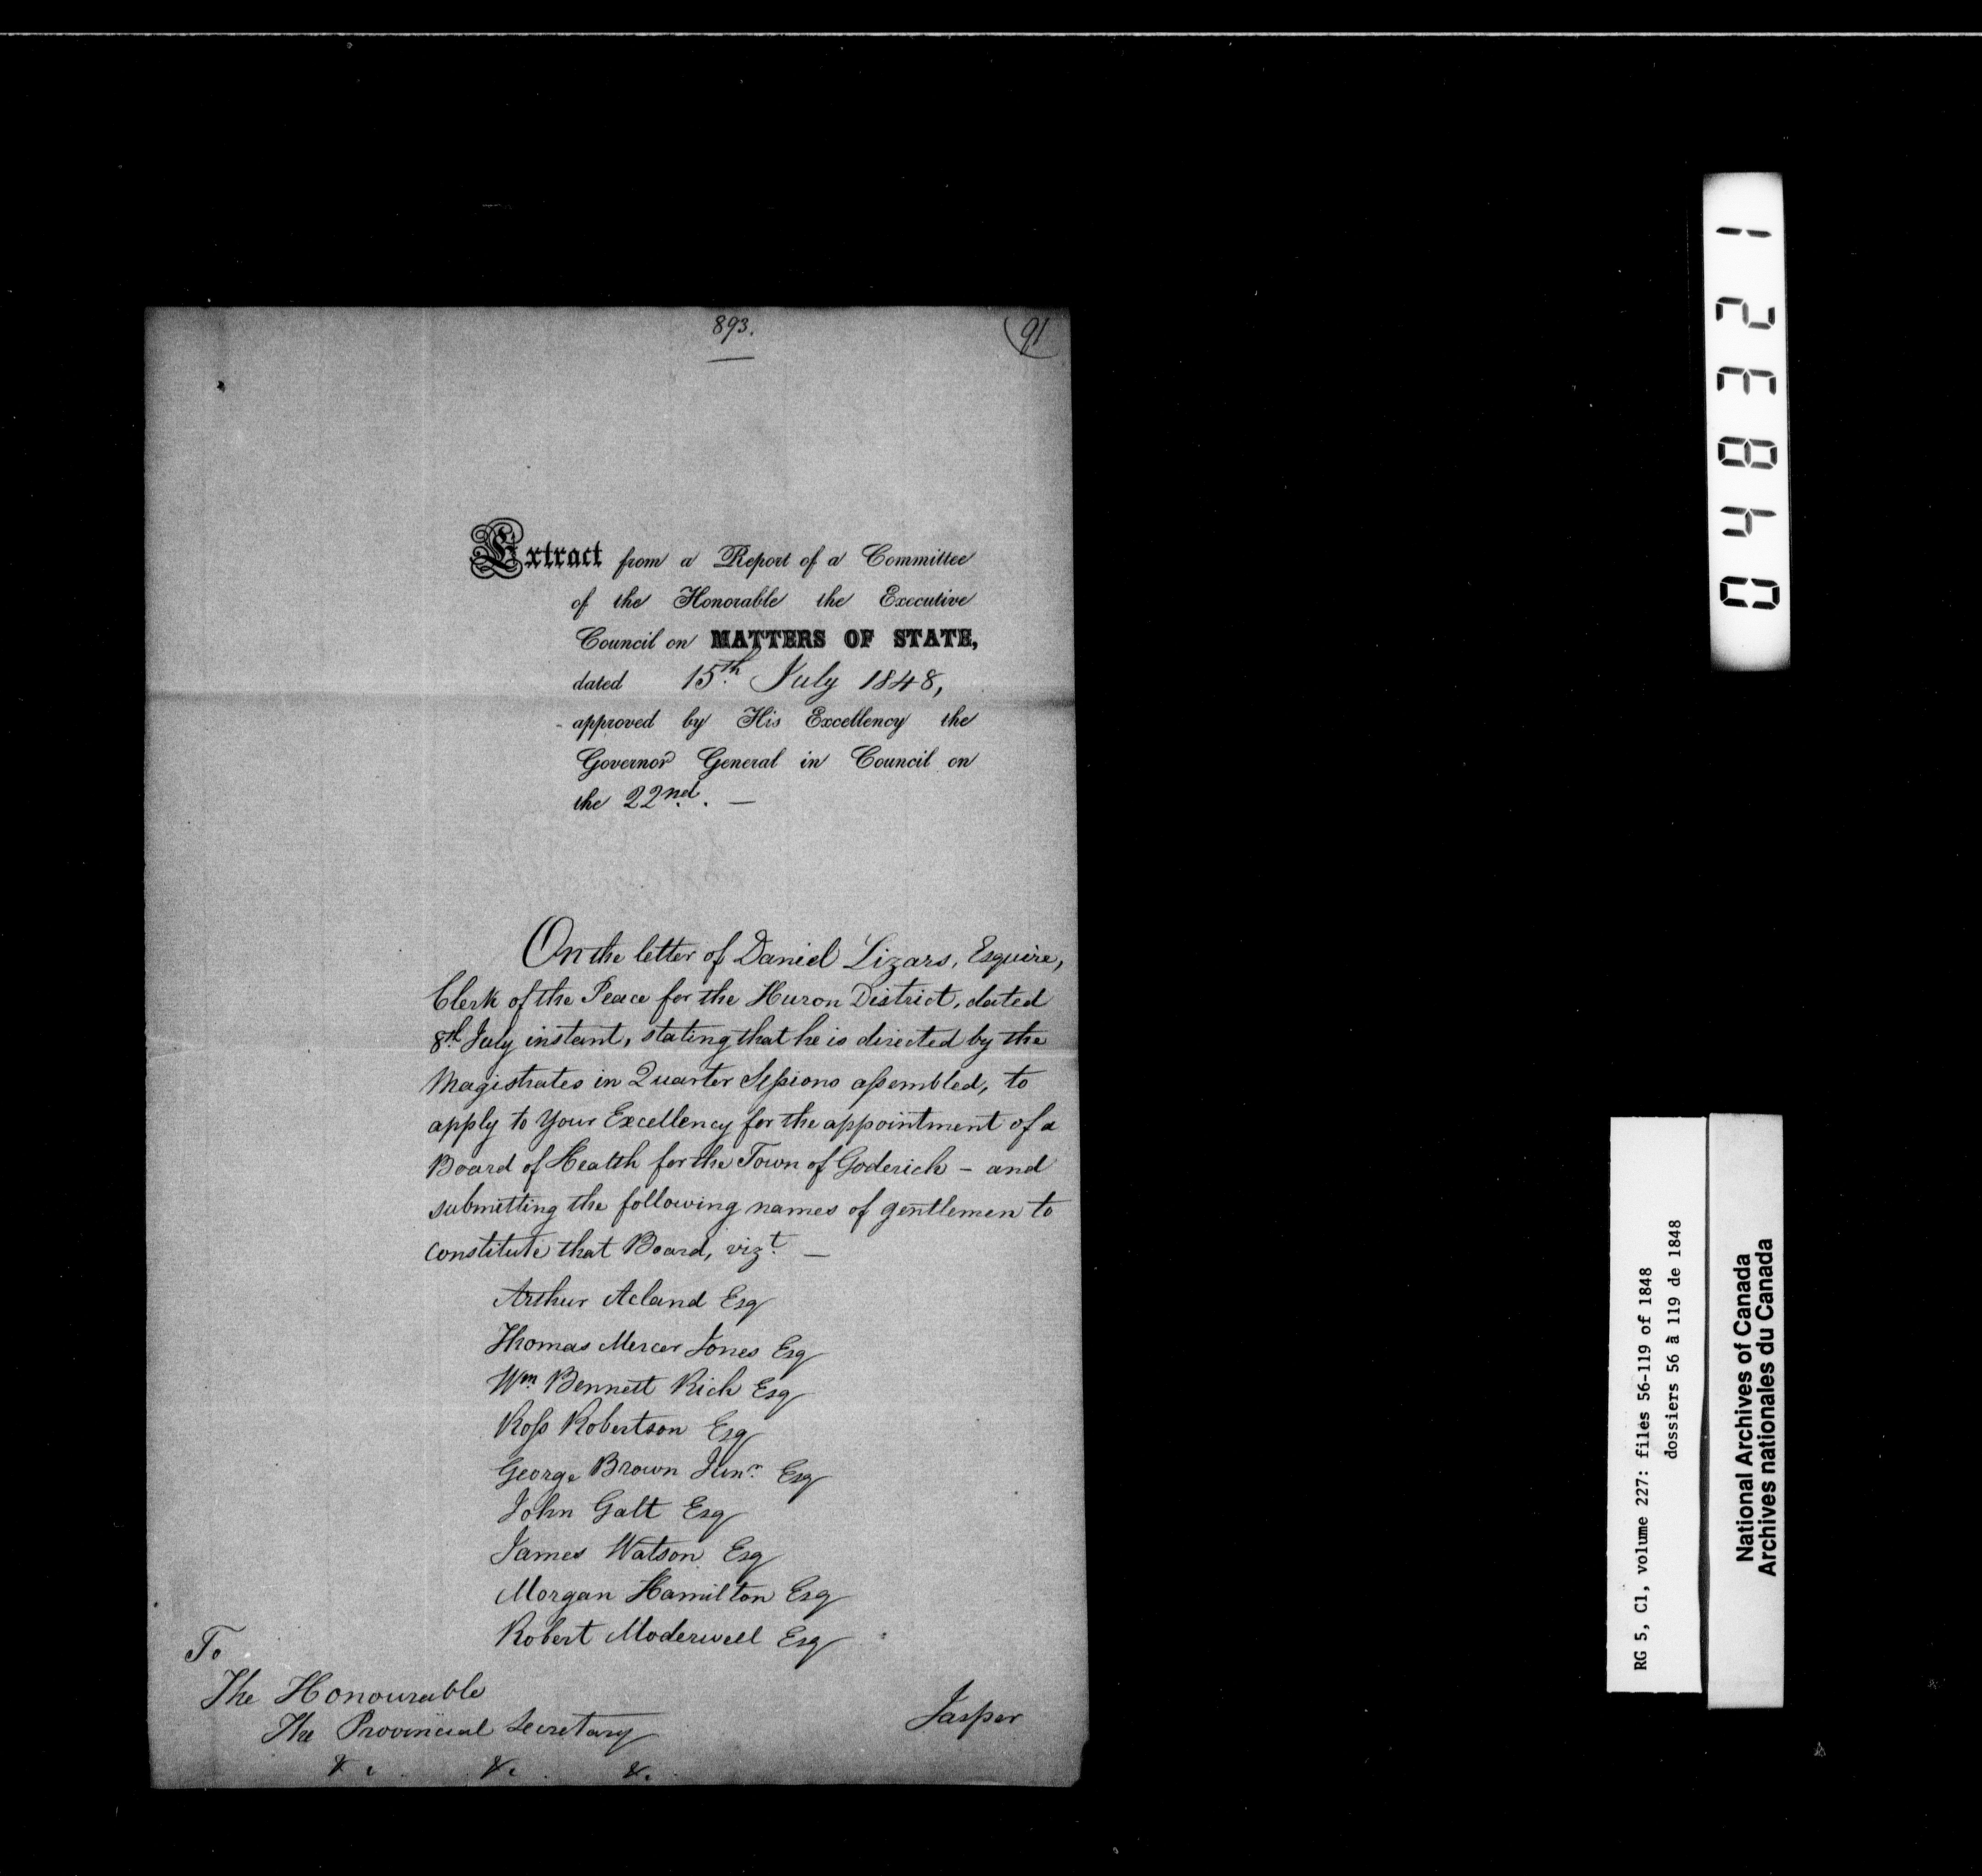 893.
91
Extract from a Report of a Committee
of the Honorable the Executive
Council on MATTERS OF STATE,
dated 15th July 1848,
approved by His Excellency the
Governor General in Council on
the 22nd. —
On the letter of Daniel Lizars, Esquire,
Clerk of the Peace for the Huron District, dated
8th July instant, stating that he is directed by the
Magistrates in Quarter Sessions assembled, to
apply to Your Excellency for the appointment of a
Board of Health for the Town of Goderich – and
submitting the following names of gentlemen to
constitute that Board, vizt. —
Arthur Acland Esq
Thomas Mercer Jones Esq
Wm Bennett Rich Esq
Ross Robertson Esq
George Brown Junr. Esq
John Galt Esq
James Watson Esq
Morgan Hamilton Esq
Robert Moderwell Esq
To
The Honourable
The Provincial Secretary
&c. &c. &c.
Jasper
048321
RG 5, C1, volume 227: files 56-119 of 1848
dossiers 56 à 119 de 1848
National Archives of Canada
Archives nationales du Canada